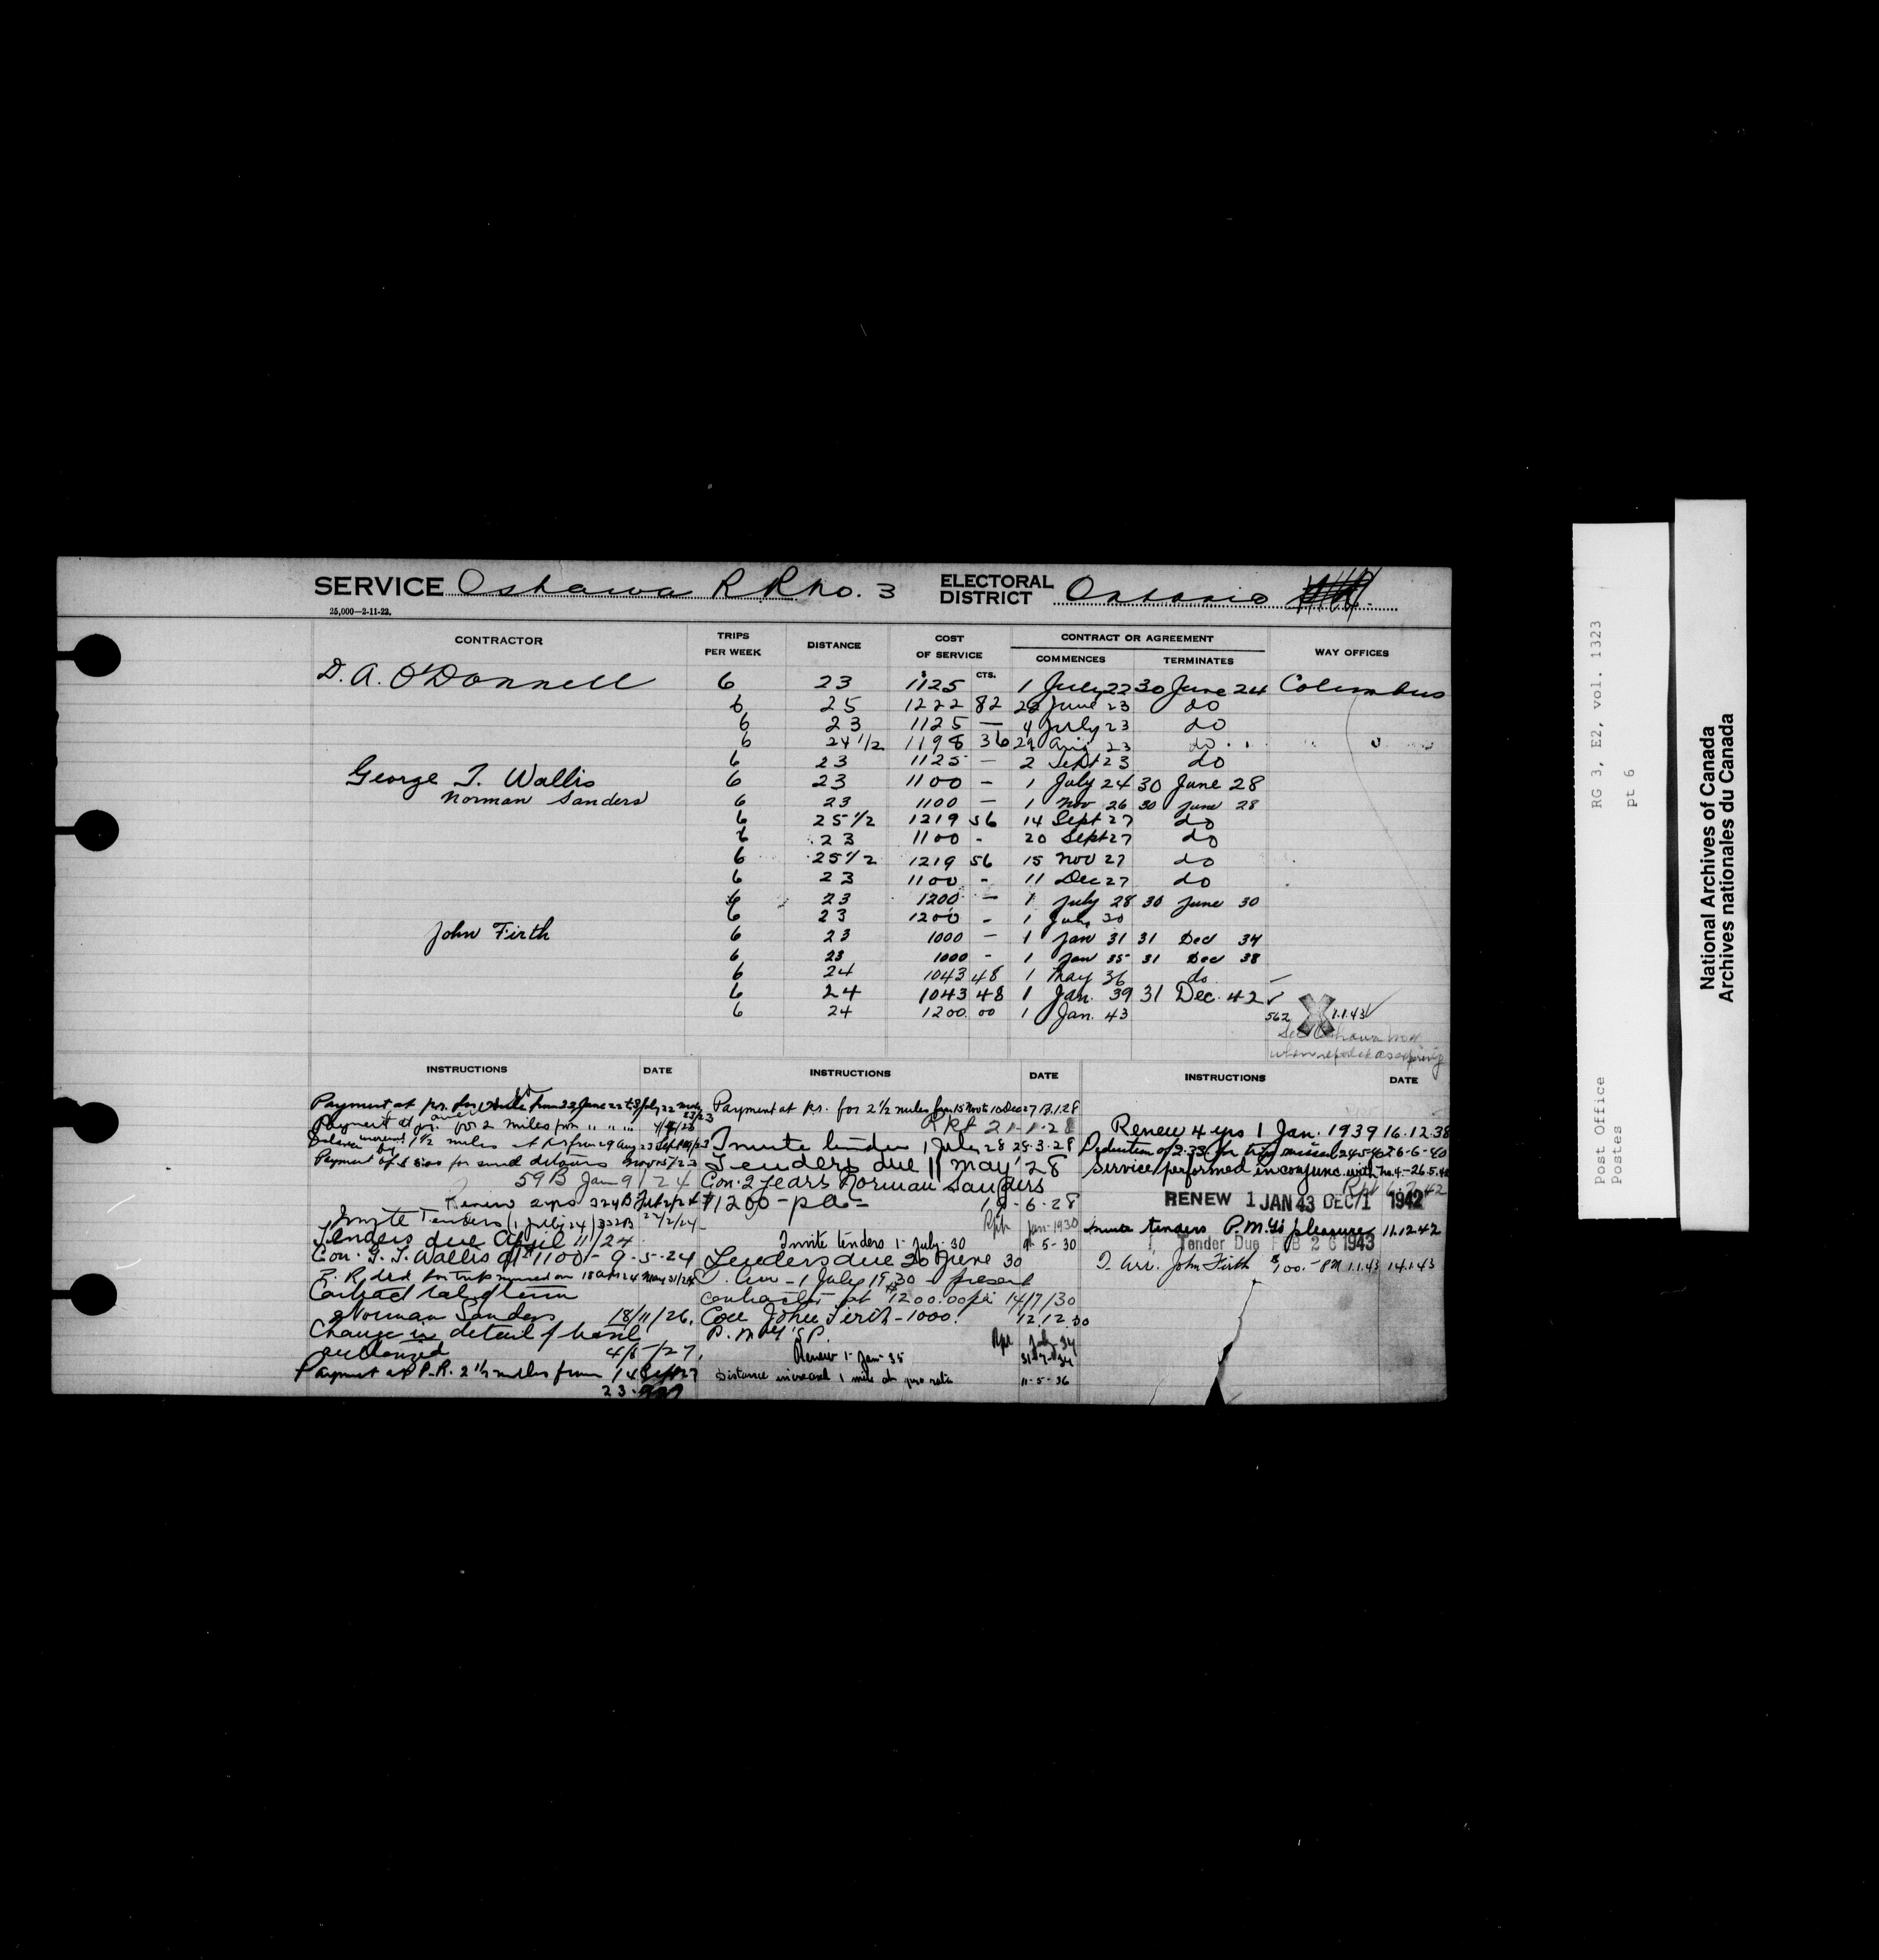 SERVICE Oshawa R R No. 3 ELECTORAL DISTRICT Ontario
25,000—2-11-22.
CONTRACTOR TRIPS PER WEEK DISTANCE COST OF SERVICE CONTRACT OR AGREEMENT WAY OFFICES
$ CTS. COMMENCES TERMINATES
D. A. O'Donnell 6 23 1125 1 July 22 30 June 24 Columbus
6 25 1222 82 22 June 23 do
6 23 1125 — 4 July 23 do
6 24 1/2 1198 36 29 Aug 23 do
6 23 1125 — 2 Sept 23 do
George T. Wallis 6 23 1100 - 1 July 24 30 June 28
Norman Sanders 6 23 1100 — 1 Nov 26 30 June 28
6 25 1/2 1219 56 14 Sept 27 do
6 23 1100 - 20 Sept 27 do
6 25 1/2 1219 56 15 Nov 27 do
6 23 1100 - 11 Dec 27 do
6 23 1200 — 1 July 28 30 June 30
6 23 1200 - 1 July 30
John Firth 6 23 1000 — 1 Jan 31 31 Dec 34
6 23 1000 - 1 Jan 35 31 Dec 38
6 24 1043 48 1 May 36 do
6 24 1043 48 1 Jan. 39 31 Dec. 42 ✓
6 24 1200. 00 1 Jan. 43 562 X 1.1.43 ✓
See Oshawa
when
INSTRUCTIONS DATE
Payment at pr. for
Payment at pr. for 2 miles from " " "
1 1/2 miles at from 29 Aug 23
Payment of for detours Nov 5/23
59B Jan 9/24
Renew 2 yrs 324B
Invite Tenders 1 July 24 332B 22/2/24
Tenders due April 11/24
Con. G. T. Wallis at $1100 - 9-5-24
P. R. ded. for trips missed on
Contract
Norman Sanders 18/11/26.
Change in detail of
authorized 4/8/27.
Payment at P.R. 2 1/2 miles from 14 Sept 27
INSTRUCTIONS DATE
Payment at pr. for 2 1/2 miles from 15 Nov to 10 Dec 27 13.1.28
Rpt 21-1-28
Invite tenders 1 July 28 28-3-28
Tenders due 11 May '28
Con. 2 years Norman Sanders
$1200 - pa - -6-28
Rpt Jan-1930
Invite tenders 1- July-30 9-5-30
Tenders due 20 June 30
T. Arr - 1 July 1930 - present
contractor at $1200.00 pa 14/7/30
Con John Firth - 1000. 12.12.30
P.M.G'S P.
Rpt July-34
Renew 1- Jan-35 31-7-34
Distance increased 1 mile at pro rata 11-5-36
INSTRUCTIONS DATE
Renew 4 yrs 1 Jan. 1939 16.12.38
Deduction of 3.33 for trip missed 24-5-40 6-6-40
Service performed in conjunc. with No. 4 - 26.5.42
RENEW 1 JAN 43 DEC 71 1942
Invite tenders P.M.G's pleasure 11.12.42
Tender Due FEB 26 1943
T. Arr. John Firth 1.1.43 14.1.43
RG 3, E2, vol. 1323
pt 6
Post Office
Postes
National Archives of Canada
Archives nationales du Canada